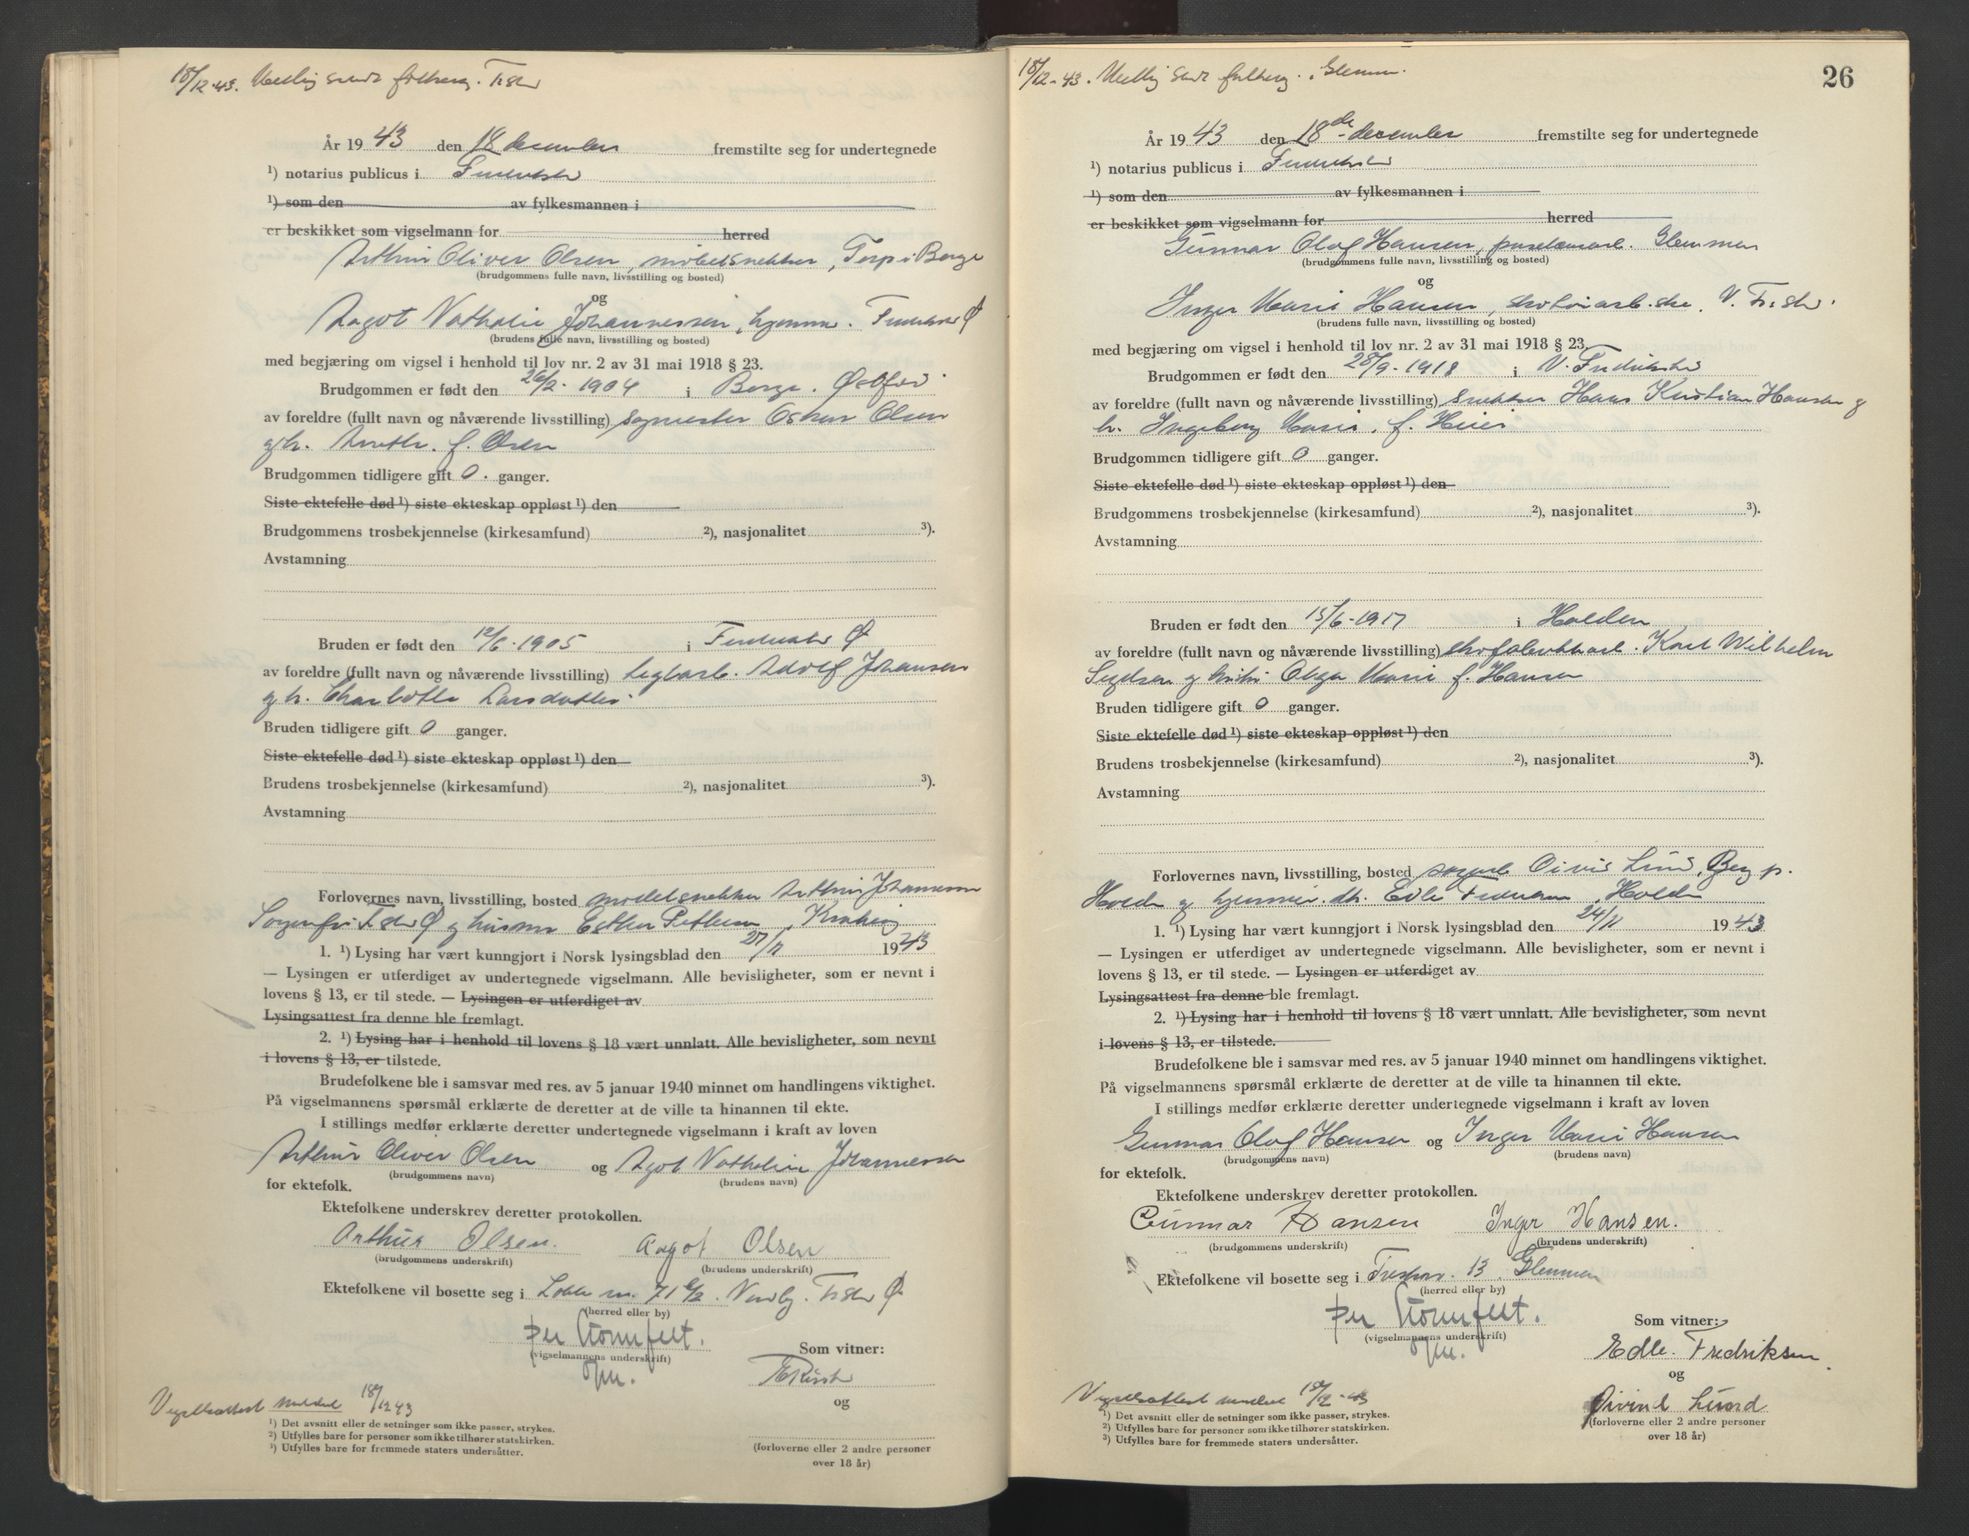 18/12-43. Melding sendt folkereg. Fr.stad
År 1943 den 18 december fremstilte seg for undertegnede
¹) notarius publicus i Fredrikstad
¹) som den av fylkesmannen i
er beskikket som vigselmann for herred
Arthur Oliver Olsen, møbelsnekker, Torp i Borge
(brudgommens fulle navn, livsstilling og bosted)
og
Aagot Nathalie Johannessen, hjemme. Fredrikstad Ø
(brudens fulle navn, livsstilling og bosted)
med begjæring om vigsel i henhold til lov nr. 2 av 31 mai 1918 § 23.
Brudgommen er født den 26/2-1904 i Borge. Østfold
av foreldre (fullt navn og nåværende livsstilling) sagmester Oskar Olsen
og h. f. Olsen
Brudgommen tidligere gift 0. ganger.
Siste ektefelle død ¹) siste ekteskap oppløst ¹) den
Brudgommens trosbekjennelse (kirkesamfund) ²), nasjonalitet ³).
Avstamning
Bruden er født den 12/6-1905 i Fredrikstad Ø
av foreldre (fullt navn og nåværende livsstilling) teglarb. Adolf Johansen
og h. Charlotte Larsdatter
Bruden tidligere gift 0 ganger.
Siste ektefelle død ¹) siste ekteskap oppløst ¹) den
Brudens trosbekjennelse (kirkesamfund) ²), nasjonalitet ³).
Avstamning
Forlovernes navn, livsstilling, bosted modelsnekker Arthur Johannessen
Sorgenfri Fr.stad Ø og husmor Esther Pettersen, Kråkerøy
1. ¹) Lysing har vært kunngjort i Norsk lysingsblad den 27/11 1943
— Lysingen er utferdiget av undertegnede vigselmann. Alle bevisligheter, som er nevnt i
lovens § 13, er til stede. — Lysingen er utferdiget av
Lysingsattest fra denne ble fremlagt.
2. ¹) Lysing har i henhold til lovens § 18 vært unnlatt. Alle bevisligheter, som nevnt
i lovens § 13, er tilstede.
Brudefolkene ble i samsvar med res. av 5 januar 1940 minnet om handlingens viktighet.
På vigselmannens spørsmål erklærte de deretter at de ville ta hinannen til ekte.
I stillings medfør erklærte deretter undertegnede vigselmann i kraft av loven
Arthur Oliver Olsen og Agot Nathalie Johannessen
(brudgommens navn) (brudens navn)
for ektefolk.
Ektefolkene underskrev deretter protokollen.
Arthur Olsen. Aagot Olsen
(brudgommens underskrift) (brudens underskrift)
Ektefolkene vil bosette seg i 71 Fr.stad Ø
(herred eller by)
Per Stormfelt.
(vigselmannens underskrift)
Som vitner:
og
Vigselsattest meldt 18/12 43
¹) Det avsnitt eller de setninger som ikke passer, strykes.
²) Utfylles bare for personer som ikke tilhører statskirken.
³) Utfylles bare for fremmede staters undersåtter.
(forloverne eller 2 andre personer
over 18 år)
18/12-43. Melding sendt folkereg. i Glemmen.
26
År 1943 den 18de december fremstilte seg for undertegnede
¹) notarius publicus i Fredrikstad
¹) som den av fylkesmannen i
er beskikket som vigselmann for herred
Gunnar Olaf Hansen, Glemmen
(brudgommens fulle navn, livsstilling og bosted)
og
Inger Marie Hansen, skotøiarb.ske, V. Fr.stad.
(brudens fulle navn, livsstilling og bosted)
med begjæring om vigsel i henhold til lov nr. 2 av 31 mai 1918 § 23.
Brudgommen er født den 28/9-1918 i V. Fredrikstad
av foreldre (fullt navn og nåværende livsstilling) snekker Hans Kristian Hansen og
h. Ingeborg Marie, f. Heier
Brudgommen tidligere gift 0 ganger.
Siste ektefelle død ¹) siste ekteskap oppløst ¹) den
Brudgommens trosbekjennelse (kirkesamfund) ²), nasjonalitet ³).
Avstamning
Bruden er født den 15/6-1917 i Halden
av foreldre (fullt navn og nåværende livsstilling) skofabrikkarb. Karl Wilhelm
og Olga Marie f. Hansen
Bruden tidligere gift 0 ganger.
Siste ektefelle død ¹) siste ekteskap oppløst ¹) den
Brudens trosbekjennelse (kirkesamfund) ²), nasjonalitet ³).
Avstamning
Forlovernes navn, livsstilling, bosted Øivind Lund, Berg p.
Halden og Edle Fredriksen, Halden
1. ¹) Lysing har vært kunngjort i Norsk lysingsblad den 24/11 1943
— Lysingen er utferdiget av undertegnede vigselmann. Alle bevisligheter, som er nevnt i
lovens § 13, er til stede. — Lysingen er utferdiget av
Lysingsattest fra denne ble fremlagt.
2. ¹) Lysing har i henhold til lovens § 18 vært unnlatt. Alle bevisligheter, som nevnt
i lovens § 13, er tilstede.
Brudefolkene ble i samsvar med res. av 5 januar 1940 minnet om handlingens viktighet.
På vigselmannens spørsmål erklærte de deretter at de ville ta hinannen til ekte.
I stillings medfør erklærte deretter undertegnede vigselmann i kraft av loven
Gunnar Olaf Hansen og Inger Marie Hansen
(brudgommens navn) (brudens navn)
for ektefolk.
Ektefolkene underskrev deretter protokollen.
Gunnar Hansen Inger Hansen.
(brudgommens underskrift) (brudens underskrift)
Ektefolkene vil bosette seg i 13, Glemmen
(herred eller by)
Per Stormfelt.
(vigselmannens underskrift)
Som vitner:
Edle. Fredriksen.
og
Øivind Lund
(forloverne eller 2 andre personer
over 18 år)
Vigselsattest meldt 18/12-43
¹) Det avsnitt eller de setninger som ikke passer, strykes.
²) Utfylles bare for personer som ikke tilhører statskirken.
³) Utfylles bare for fremmede staters undersåtter.